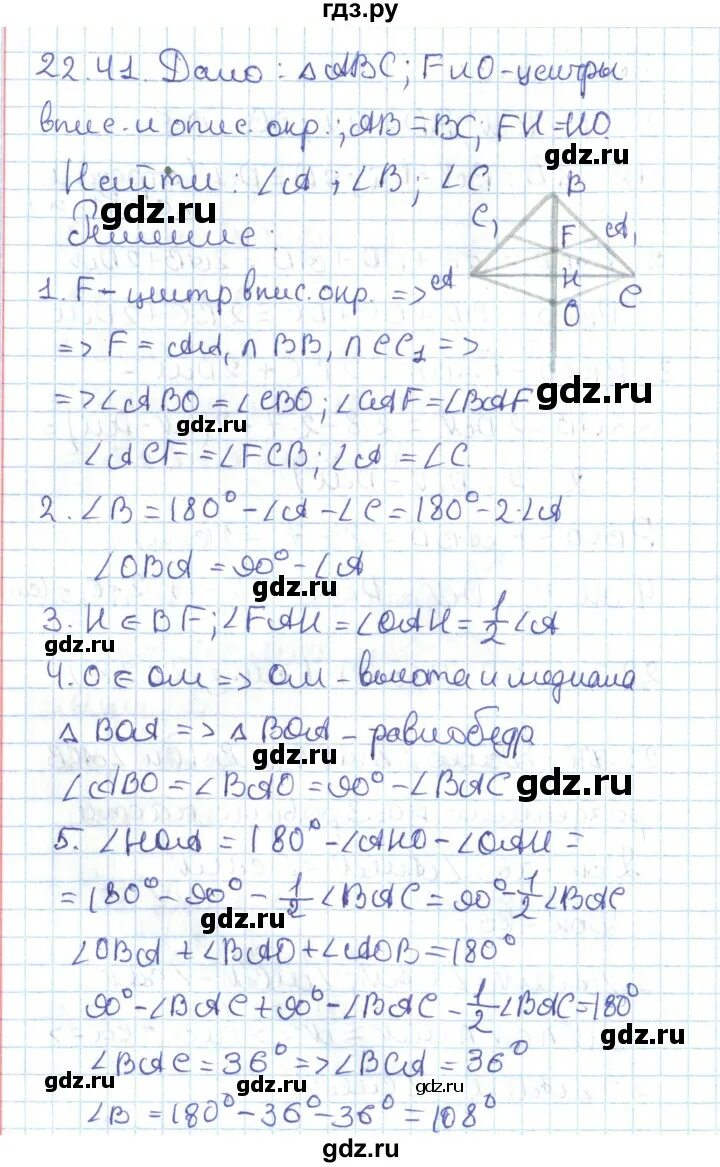 гдз.ру
22.41. Дано: △ABC; F и O - центры
впис. и опис. окр.; AB = BC; FH = HO.
Найти: ∠A; ∠B; ∠C
gdz.ru
B
gdz.ru
C₁ F A₁
Решение:
A H C
O
1. F - центр впис. окр. =>
=> F = AA₁ ∩ BB₁ ∩ CC₁ =>
=> ∠ABO = ∠CBO; ∠CAF = ∠BAF
gdz.ru
gdz.ru
∠ACF = ∠FCB; ∠A = ∠C.
2. ∠B = 180° - ∠A - ∠C = 180° - 2·∠A
∠OBA = 90° - ∠A
gdz.ru
3. H ∈ BF; ∠FAH = ∠OAH = 1/2 ∠A
gdz.ru
4. O ∈ OM => OM - высота и медиана
△BOA => △BOA - равнобедр
gdz.ru
∠ABO = ∠BAO = 90° - ∠BAC
gdz.ru
5. ∠HOA = 180° - ∠AHO - ∠OAH =
= 180° - 90° - 1/2 ∠BAC = 90° - 1/2 ∠BAC
gdz.ru
∠OBA + ∠BAO + ∠AOB = 180°
90° - ∠BAC + 90° - ∠BAC - 1/2 ∠BAC = 180°
gdz.ru
∠BAC = 36° => ∠BCA = 36°
gdz.ru gdz.ru gdz.ru
∠B = 180° - 36° - 36° = 108°
gdz.ru